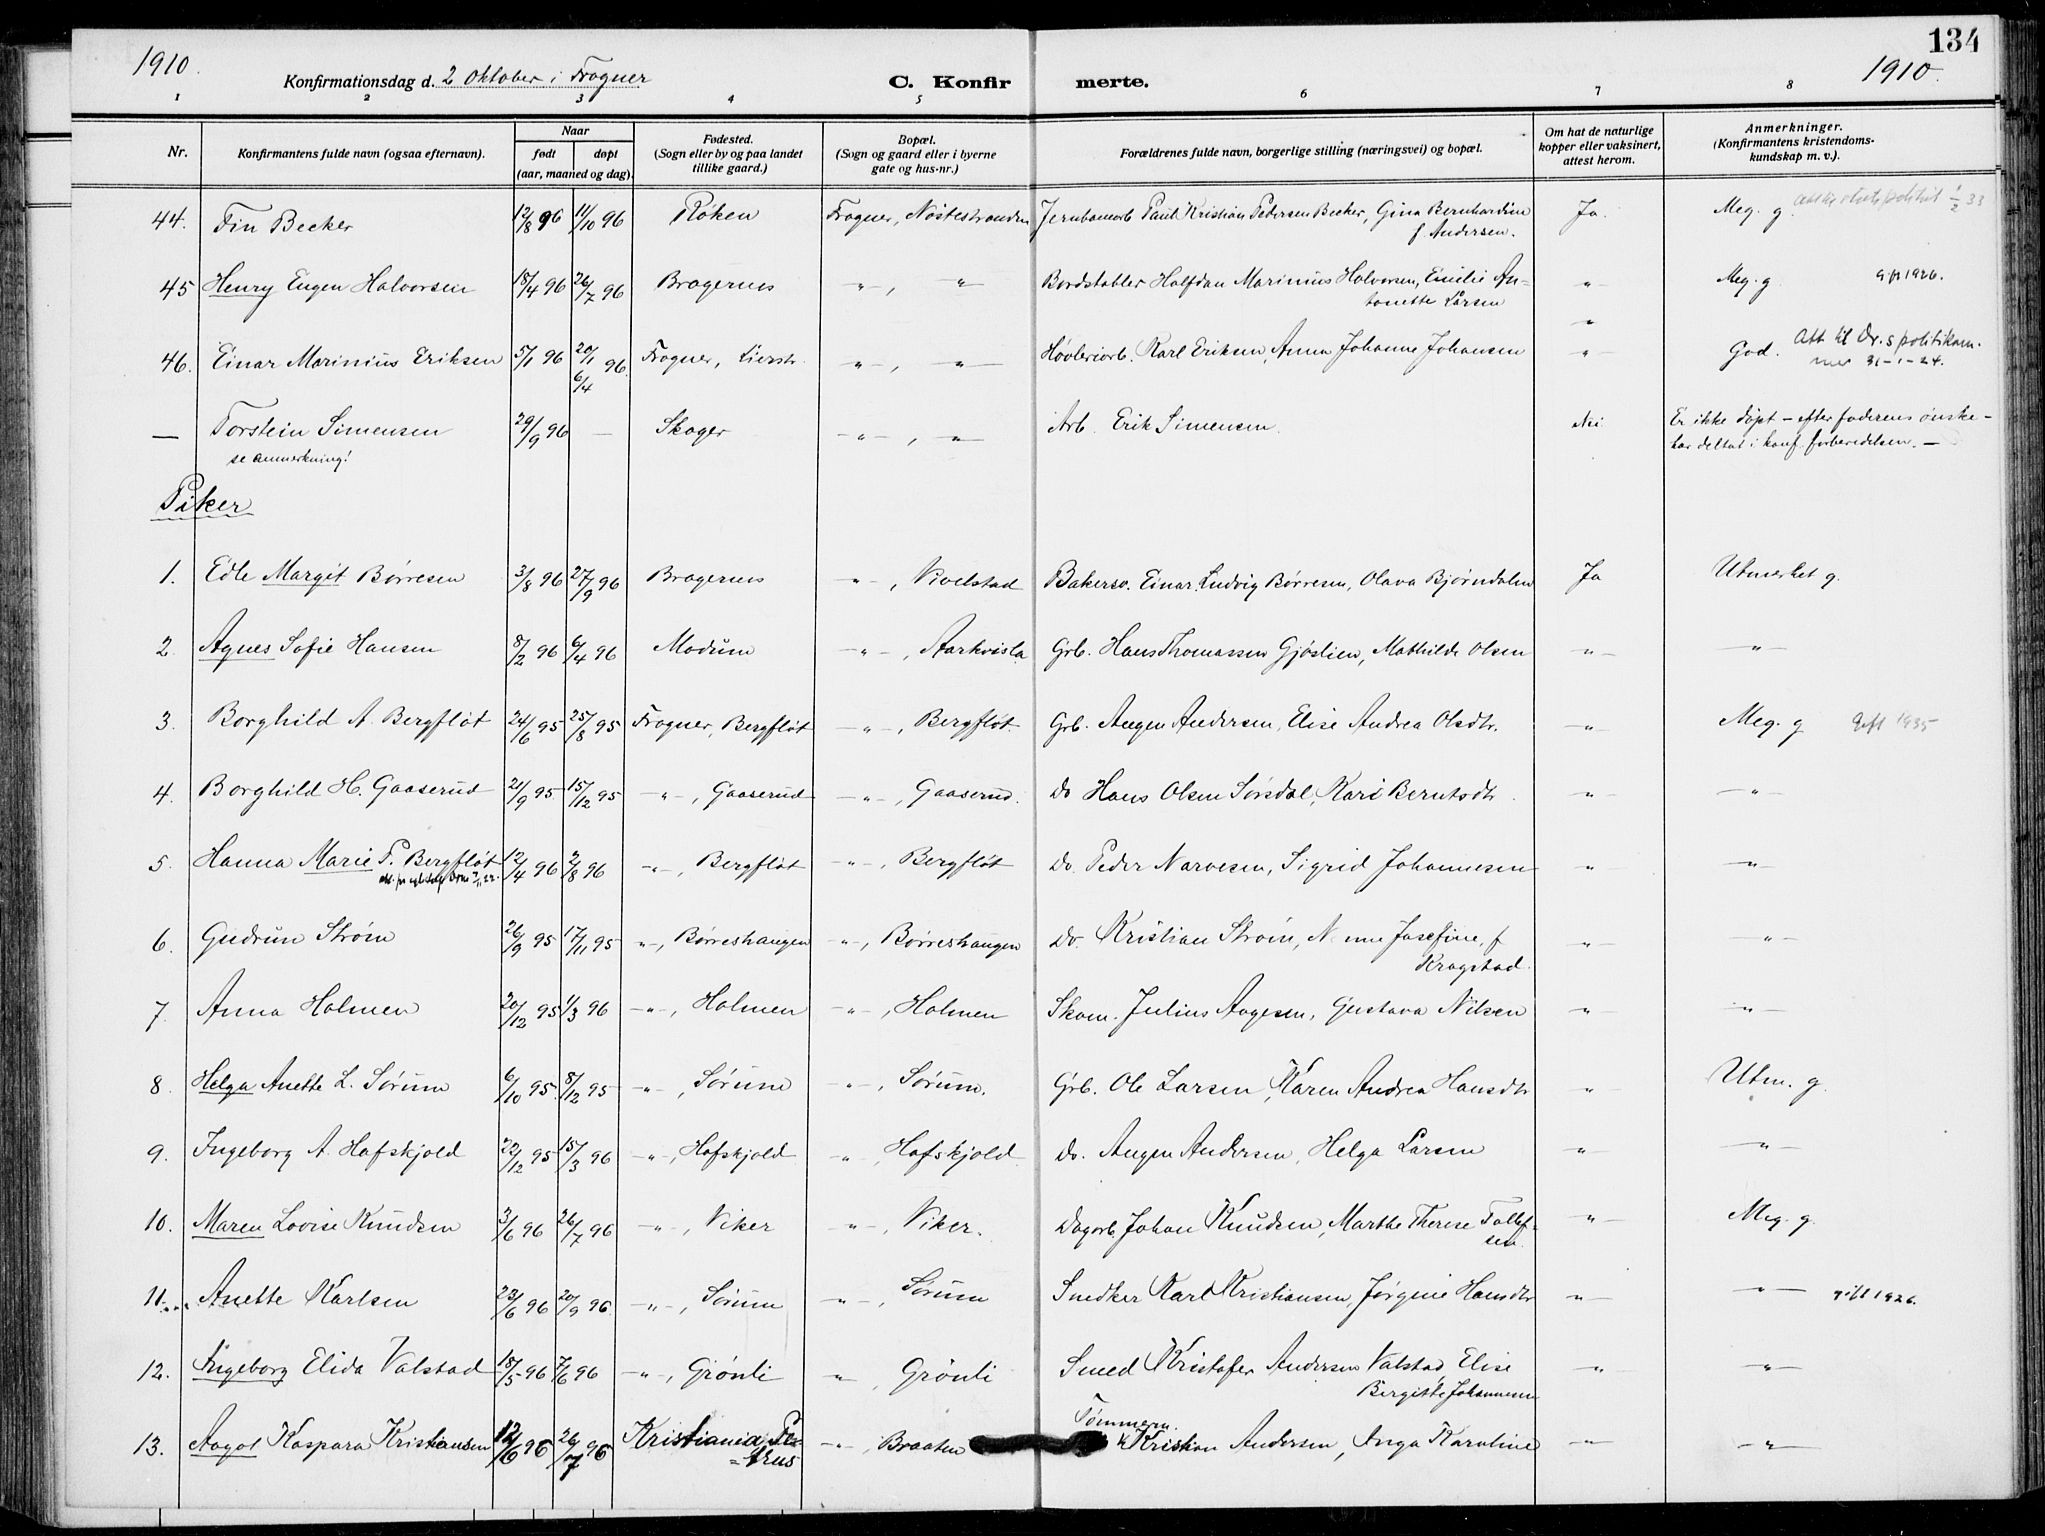 134
1910. 1910.
Konfirmationsdag d. 2 Oktober i Frogner C. Konfirmerte.
1 2 3 4 5 6 7 8
Nr. Konfirmantens fulde navn (ogsaa efternavn). Naar født døpt (aar, maaned og dag). Fødested. (Sogn eller by og paa landet tillike gaard.) Bopæl. (Sogn og gaard eller i byerne gate og hus-nr.) Forældrenes fulde navn, borgerlige stilling (næringsvei) og bopæl. Om hat de naturlige kopper eller vaksinert, attest herom. Anmerkninger. (Konfirmantens kristendomskundskap m. v.).
44. Fin Becker 12/8 96 11/10 96 Röken Frogner, Nöstestranden Jernbanearb. Paul Kristian Pedersen Becker, Gina Bernhardine f. Andersen. Ja. Meg. g. 1/2 33
45 Henry Eugen Halvorsen 18/4 96 26/7 96 Bragernes -"-, -"- Bordstabler Halfdan Marinius Halvorsen, Emilie Antonette Larsen -"- Meg. g. gift 1926.
46. Einar Marinius Eriksen 5/1 96 20/1 6/4 96. Frogner, Lierstr. -"-, -"- Høvleriarb. Karl Eriksen, Anna Johanne Johansen -"- God. Att til Dr.s politikammer 31-1-24.
— Torstein Simensen 29/9 96 — Skoger -"-, -"- Arb. Erik Simensen. Nei Er ikke døpt – efter faderens ønske –
se anmerkning! har deltat i konf. forberedelsen. —
Piker
1. Edle Margit Börresen 3/8 96 27/9 96 Bragernes -"-, Vivelstad Bakersv. Einar Ludvig Börresen, Olava Bjørndalen Ja Utmerket g.
2. Agnes Sofie Hansen 8/2 96 6/4 96 Modum -"-, Aarkvisla Grb. Hans Thomassen Gjöslien, Mathilde Olsen -"- -"-
3. Borghild A. Bergflöt 24/6 95 25/8 95 Frogner, Bergflöt -"-, Bergflöt. Grb. Augen Andersen, Elise Andrea Olsdtr. -"- Meg. g gift 1935
4. Borghild H. Gaaserud 21/9 95 15/12 95 -"-, Gaaserud -"-, Gaaserud. Do Hans Olsen Sörsdal, Kari Berntsdtr. -"- -"-
5. Hanna Marie P. Bergflöt 12/4 96 2/8 96 -"-, Bergflöt -"-, Bergflöt Do. Peder Narvesen, Sigrid Johannesen -"- -"-
6. Gudrun Ström 26/9 95 17/11 95 -"-, Börreshaugen -"-, Börreshaugen Do. Kristian Ström, Josefine, f Krogstad. -"- -"-
7. Anna Holmen 20/12 95 1/3 96 -"-, Holmen -"-, Holmen Skom. Julius Aagesen, Gustava Nilsen -"- -"-
8. Helga Anette L. Sörum 6/10 95. 8/12 95 -"-, Sörum -"-, Sörum. Grb. Ole Larsen, Karen Andrea Hansdtr -"- Utm. g.
9. Ingeborg A. Hafskjold 22/12 95 15/3 96 -"-, Hafskjold -"-, Hafskjold. Do. Augen Andersen, Helga Larsen -"- -"-
10. Maren Lovise Knudsen 3/6 96 26/7 96 -"-, Viker -"-, Viker. Dagarb. Johan Knudsen, Marthe Therese Tollefsen. -"- Meg. g.
11. Anette Karlsen 23/6 96 20/9 96. -"-, Sörum -"-, Sörum Snedker Karl Kristiansen, Jörgine Hansdtr -"- -"- gift 1926.
12. Ingeborg Elida Valstad 18/5 96 7/6 96 -"-, Grönli -"-, Grönli Smed Kristofer Andersen Valstad, Elise Bergitte Johannesen -"- -"-
13. Aagot Kaspara Kristiansen 12/6 96 26/7 96 Kristiania, Petrus -"-, Braaten Tömmerm. Kristian Andersen, Inga Karoline -"- -"-